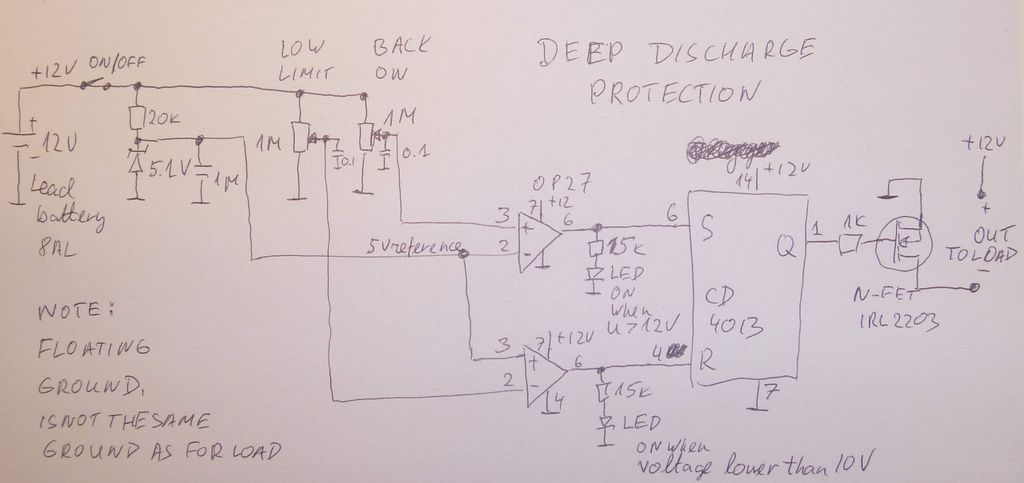 DEEP DISCHARGE
PROTECTION
+12V ON/OFF
LOW
LIMIT
BACK
ON
20K
1M
1M
0.1
0.1
+
12V
-
Lead
battery
8AL
5.1V
1M
+12V
14
+12V
OP27
7 +12
3 + 6
2 -
5V reference
15K
LED
ON
when
U > 12V
6 S
Q 1
1K
CD
4013
4 R
7
N-FET
IRL2203
+
OUT
TO LOAD
-
7 +12V
3 + 6
2 -
4
15K
LED
ON when
voltage lower than 10V
NOTE:
FLOATING
GROUND,
IS NOT THE SAME
GROUND AS FOR LOAD